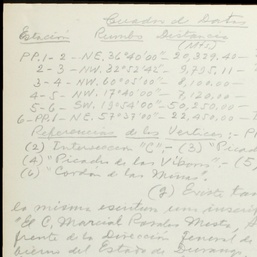 Cuadro de Datos
Estación Rumbos Distancias
(Mts.)
PP.1-2- NE. 36°40'00"- 20,339.40-
2-3- NW. 32°52'45"- 9,735.11-
3-4- NW. 60°05'00"- 8,100.00-
4-5- NW. 17°40'00"- 7,120.00-
5-6- SW. 18°54'00"- 50,250.00-
6-PP.1- NE. 57°57'00"- 22,450.00-
Referencias de los Vertices:- P
(2) Interseccion "C",- (3) "Picac
(4) "Picacho de las Viboras".- (5)
(6) "Cordón de las Minas".
(g) Existe
la misma escritura, con inscrip
"El C. Marcial
frente de la Direccion General de
bierno del Estado de Durango